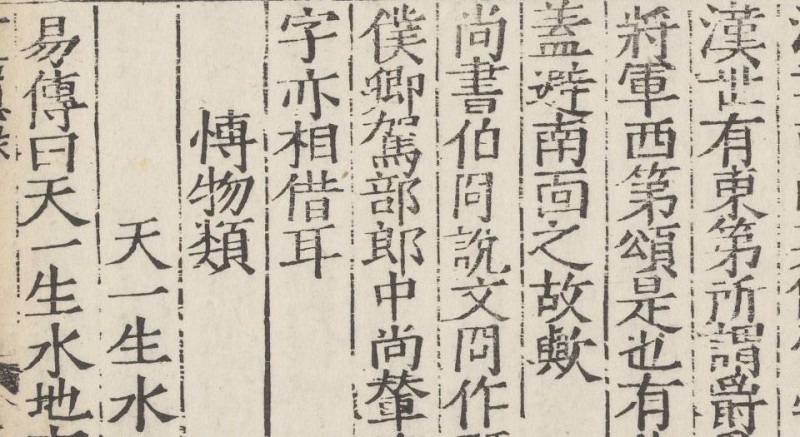 漢世有東第所謂爵
將軍西第頌是也有
蓋避南面之故歟
尚書伯冏說文冏作
僕卿駕部郎中尚輦
字亦相借耳
博物類
天一生水
易傳曰天一生水地